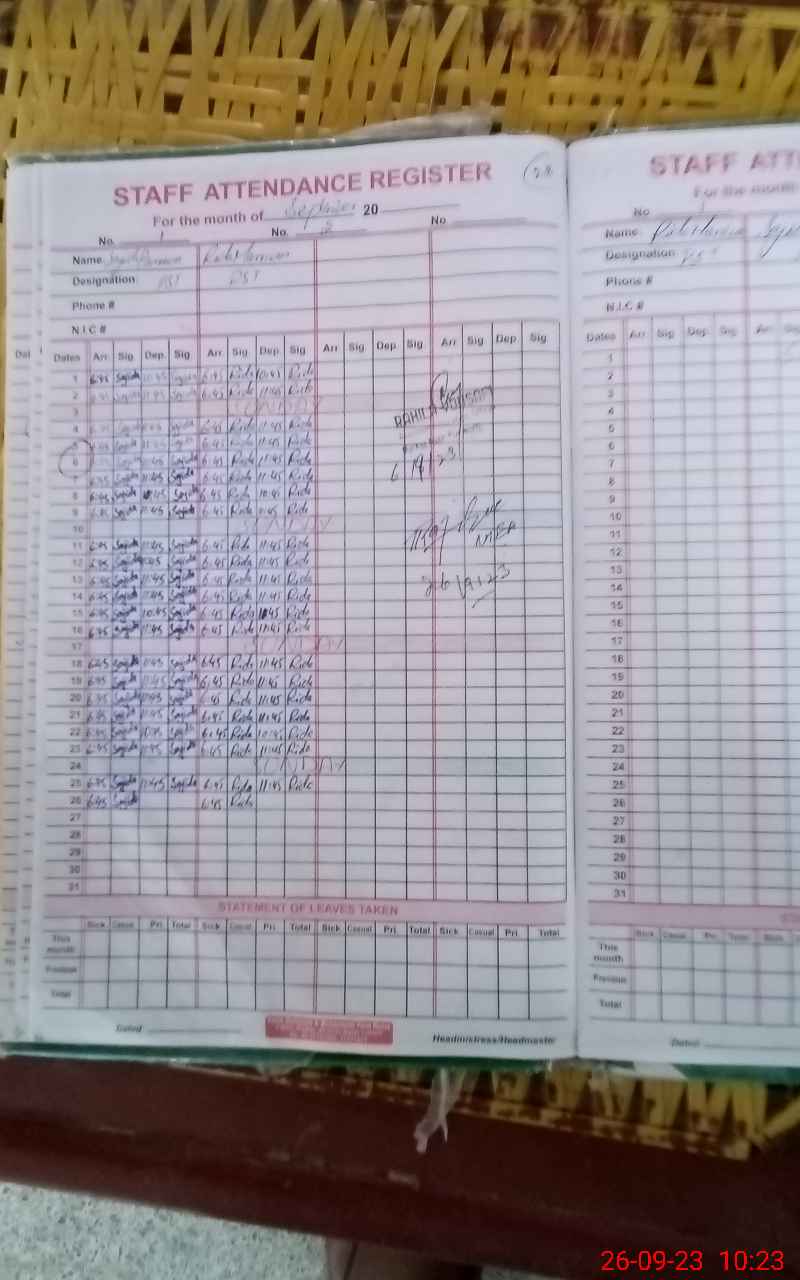 STAFF ATTENDANCE REGISTER
28
For the month of September 20
No. 1 No. 2 No
Name
Designation PST PST
Phone #
N.I.C #
Dates Arr. Sig. Dep. Sig Arr. Sig Dep. Sig Arr Sig. Dep Sig Arr. Sig. Dep. Sig
1 6:45 Sajida Sajida 6:45 Rida 10:45 Rida
2 6:45 Rida 11:45 Rida
3 SUNDAY
4 6:45 Rida 11:45 Rida
5 6:45 Rida 11:45 Rida
6 11:45 Sajida 6:45 Rida 11:45 Rida
7 6:45 Sajida 11:45 Sajida 6:45 Rida 11:45 Rida
8 6:45 Sajida 10:45 Sajida 6:45 Rida 10:45 Rida
9 6:45 Sajida 11:45 Sajida 6:45 Rida 11:45 Rida
10 SUNDAY
11 6:45 Sajida 11:45 Sajida 6:45 Rida 11:45 Rida
12 6:45 Sajida 11:45 Sajida 6:45 Rida 11:45 Rida
13 6:45 Sajida 11:45 Sajida 6:45 Rida 11:45 Rida
14 6:45 Sajida 11:45 Sajida 6:45 Rida 11:45 Rida
15 6:45 Sajida 10:45 Sajida 6:45 Rida 10:45 Rida
16 6:45 Sajida 11:45 Sajida 6:45 Rida 11:45 Rida
17 SUNDAY
18 6:45 Sajida 11:45 Sajida 6:45 Rida 11:45 Rida
19 6:45 Sajida 11:45 Sajida 6:45 Rida 11:45 Rida
20 6:45 Sajida 11:45 Sajida 6:45 Rida 11:45 Rida
21 6:45 Sajida 11:45 Sajida 6:45 Rida 11:45 Rida
22 6:45 Sajida 10:45 Sajida 6:45 Rida 10:45 Rida
23 6:45 Sajida 11:45 Sajida 6:45 Rida 11:45 Rida
24 SUNDAY
25 6:45 Sajida 11:45 Sajida 6:45 Rida 11:45 Rida
26 6:45 Sajida 6:45 Rida
27
28
29
30
31
RAHILA
6/9/23
26/9/23
STATEMENT OF LEAVES TAKEN
Sick Casual Pri. Total Sick Casual Pri. Total Sick Casual Pri. Total Sick Casual Pri. Total
This month
Previous
Total
Dated
Headmistress/Headmaster
STAFF ATT
For the month
No 1
Name
Designation PST
Phone #
N.I.C #
Dates Arr. Sig. Dep. Sig. Arr.
1
2
3
4
5
6
7
8
9
10
11
12
13
14
15
16
17
18
19
20
21
22
23
24
25
26
27
28
29
30
31
Sick Casual Pri. Total Sick
This month
Previous
Total
Dated
26-09-23 10:23